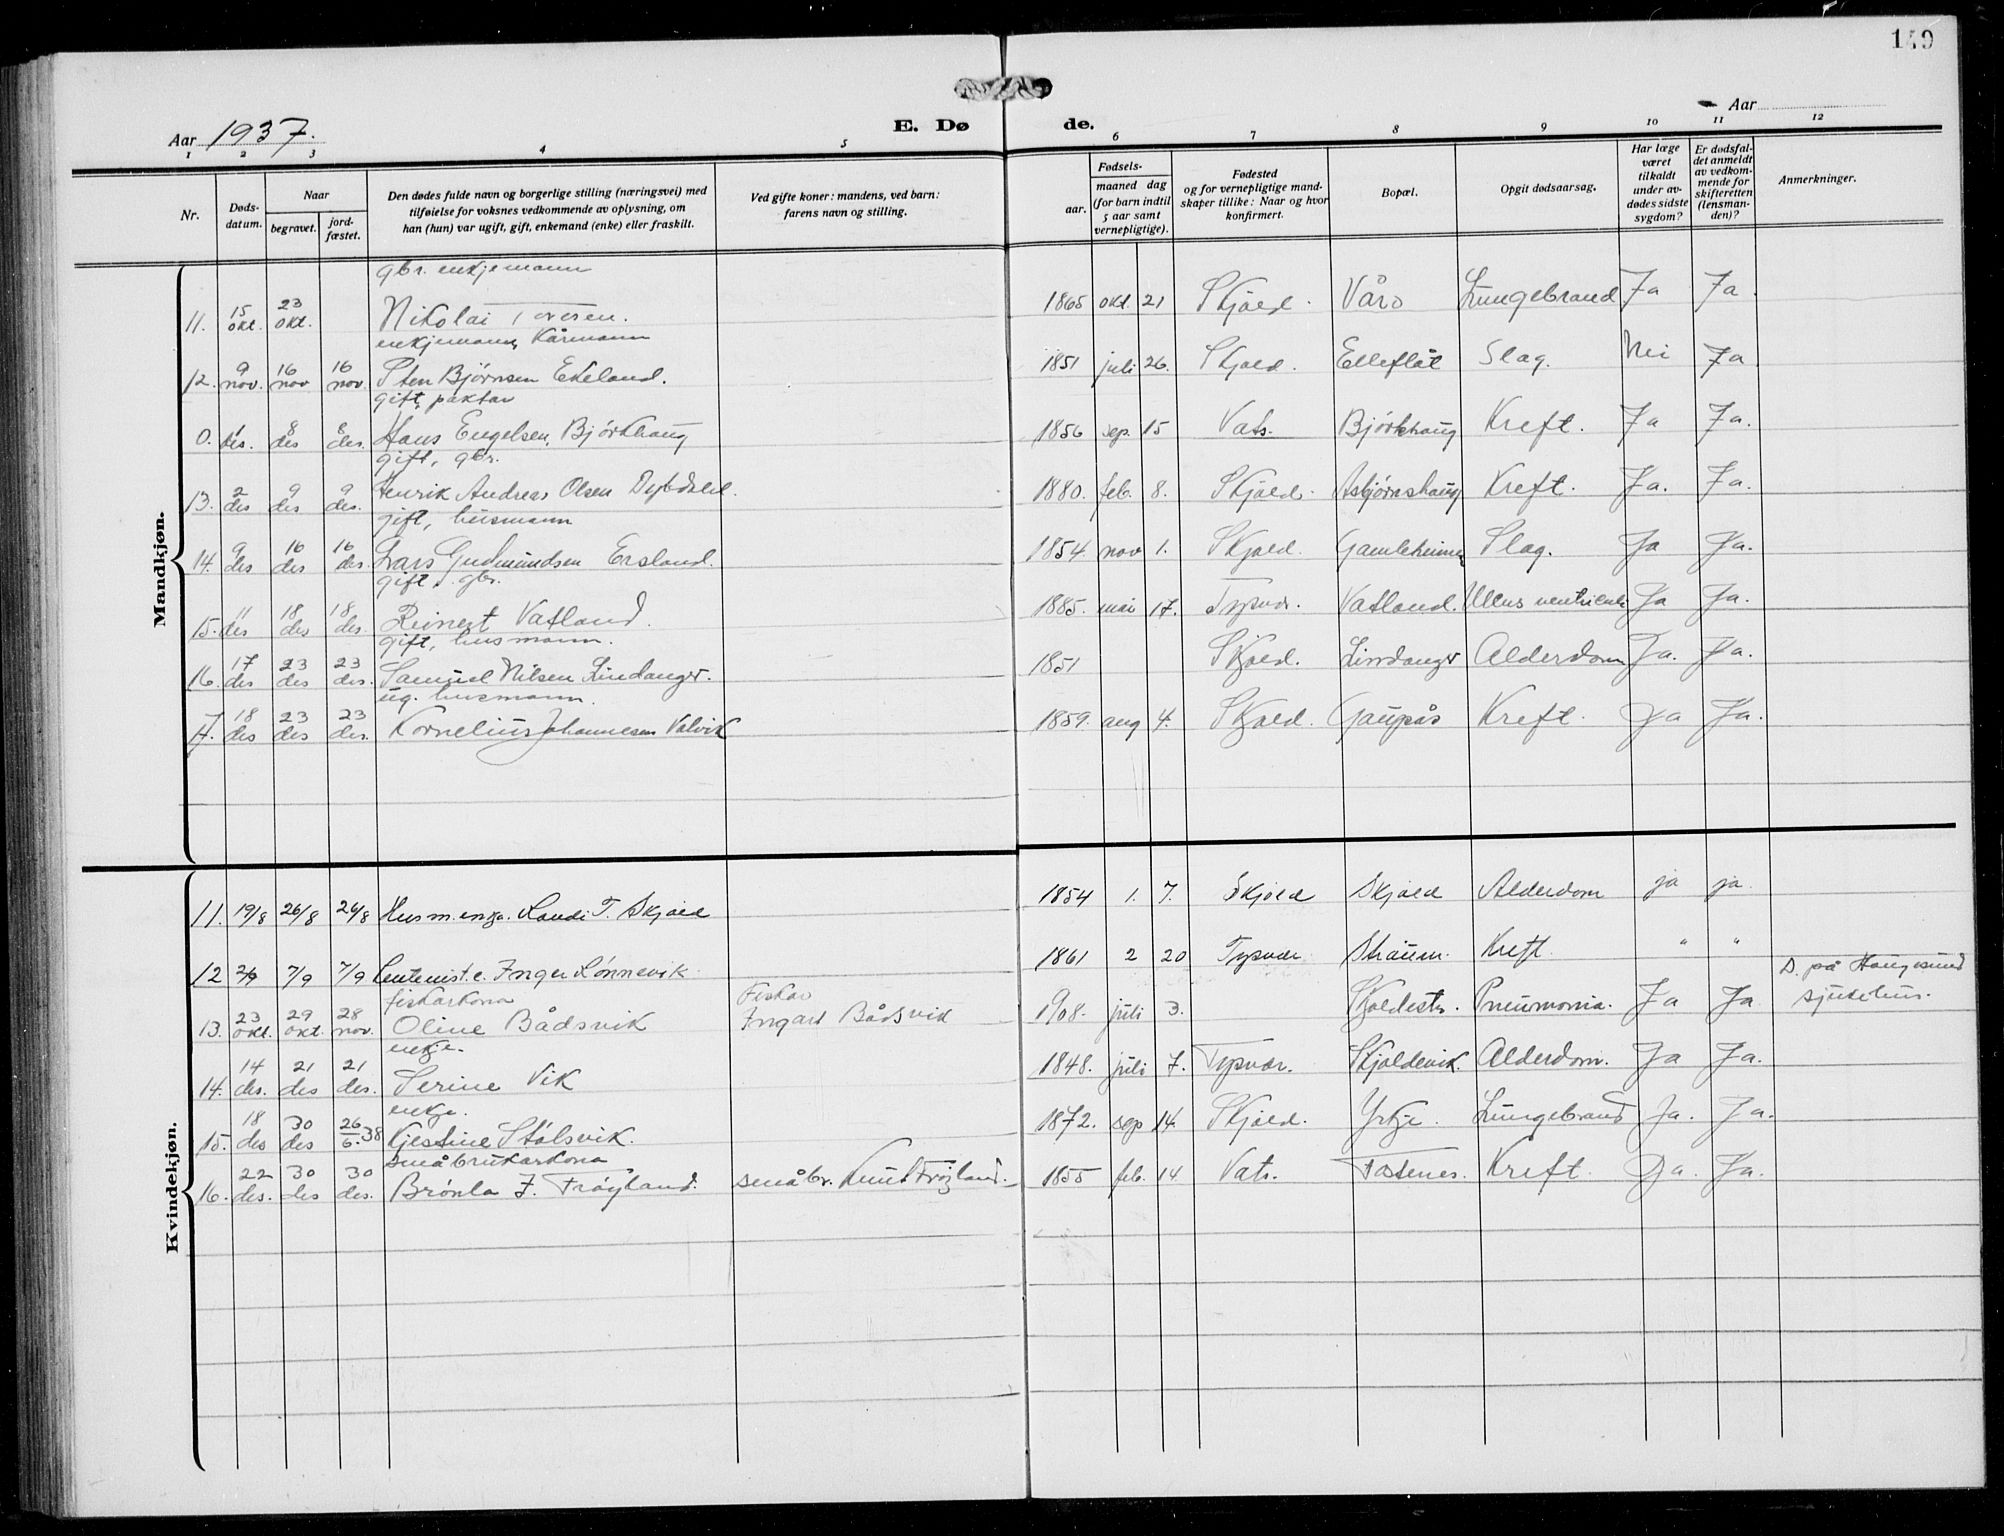 149
Aar 1937.
E. Døde.
Aar
1 2 3 4 5 6 7 8 9 10 11 12
Nr.
Døds-datum.
Naar
begravet.
jord-fæstet.
Den dødes fulde navn og borgerlige stilling (næringsvei) med
tilføielse for voksnes vedkommende av oplysning, om
han (hun) var ugift, gift, enkemand (enke) eller fraskilt.
Ved gifte koner: mandens, ved barn:
farens navn og stilling.
Fødsels-
aar.
maaned dag
(for barn indtil
5 aar samt
vernepligtige).
Fødested
og for vernepligtige mand-
skaper tillike: Naar og hvor
konfirmert.
Bopæl.
Opgit dødsaarsag.
Har læge
været
tilkaldt
under av-
dødes sidste
sygdom?
Er dødsfal-
det anmeldt
av vedkom-
mende for
skifteretten
(lensman-
den)?
Anmerkninger.
Mandkjøn.
gbr. enkjemann
11. 15 okt. 23 okt. Nikolai 1865 okt. 21 Skjold. Våro Lungebrand Ja Ja.
enkjemann, Kårmann
12. 9 nov. 16 nov 16 nov. Sten Bjørnsen Ekeland. 1851 juli 26. Skjold. Elleflåt Slag. Nei Ja
gift, paktar
0. 1 des. 8 des 8 des. Hans Engelsen, Bjørkhaug 1856 sep. 15 Vats. Bjørkhaug Kreft. Ja Ja.
gift, gbr.
13. 2 des 9 des 9 des. Henrik Andreas Olsen Dybdahl. 1880. feb. 8. Skjold. Asbjørnshaug Kreft. Ja. Ja.
gift, husmann
14. 9 des 16 des 16 des. Lars Gudmundsen Ersland. 1854. nov 1. Skjold. Gamleheimen Slag. Ja Ja.
gift, gbr.
15. 11 des 18 des 18 des. Reinert Vatland. 1885. mai 17. Tysvær. Vatland. Ulcus ventriculi Ja Ja.
gift, husmann.
16. 17 des 23 des 23 des. Samuel Nilsen Lindanger. 1851 Skjold. Lindanger Alderdom Ja. Ja.
ug. husmann.
17. 18 des 23 des 23 des. Kornelius Johannesen Valvik 1859. aug 4. Skjold. Gaupås Kreft. Ja Ja.
Kvindekjøn.
11. 19/8 26/8 26/8 Husm.enke. T. Skjold 1854 1. 7. Skjold Skjold Alderdom ja ja.
12 2/9 7/9 7/9 Inger Lønnevik. 1861 2 20 Tysvær Straum. Kreft. " "
fiskarkona Fiskar D. på Haugesund
13. 23 okt. 29 okt. 28 nov. Oline Bådsvik Ingart Bådsvik 1908. juli 3. Skjoldestr. Pneumonia. Ja Ja. sjukehus.
enkje.
14. 14 des. 21 des 21 des. Serine Vik 1848. juli 7. Tysvær. Skjoldevik. Alderdom. Ja Ja.
enkje.
15. 18 des 30 des 26/6.38 Kjestine Stølsvik. 1872. sep 14. Skjold. Yrkje. Lungebrand Ja. Ja.
småbrukarkona
16. 22 des. 30 des 30 des. Brønla J. Frøyland. småbr. Knut Frøyland. 1855 feb. 14 Vats. Kreft. Ja. Ja.